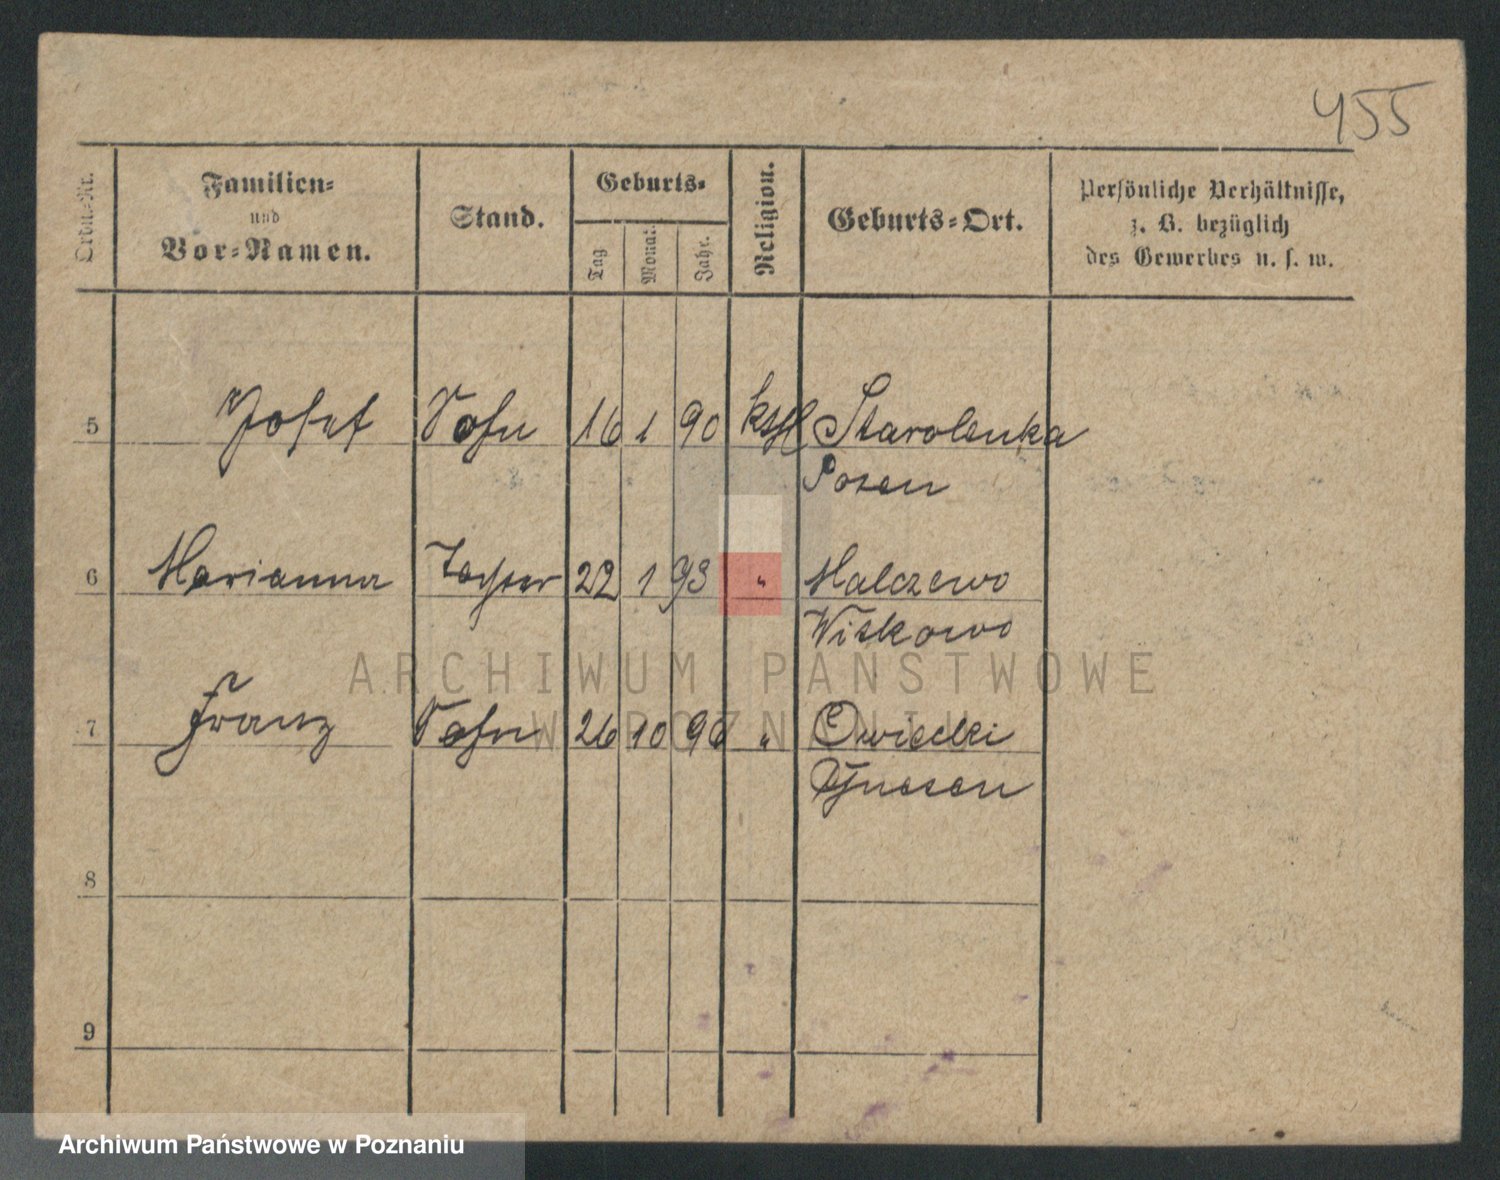 455
Ordn.-Nr.
Familien-
und
Vor-Namen.
Stand.
Geburts-
Tag
Monat.
Jahr.
Religion.
Geburts-Ort.
Persönliche Verhältnisse,
z. B. bezüglich
des Gewerbes u. s. w.
5 Josef Sohn 16 1 90 kath Starolenka
Posen
6 Marianna Tochter 22 1 93 " Malczewo
Witkowo
ARCHIWUM PAŃSTWOWE
W POZNANIU
7 Franz Sohn 26 10 96 " Owieczki
Gnesen
8
9
Archiwum Państwowe w Poznaniu